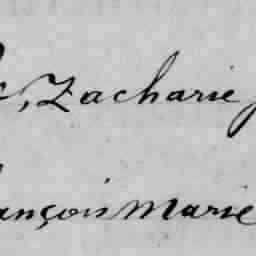 , Zacharie
ançois Marie